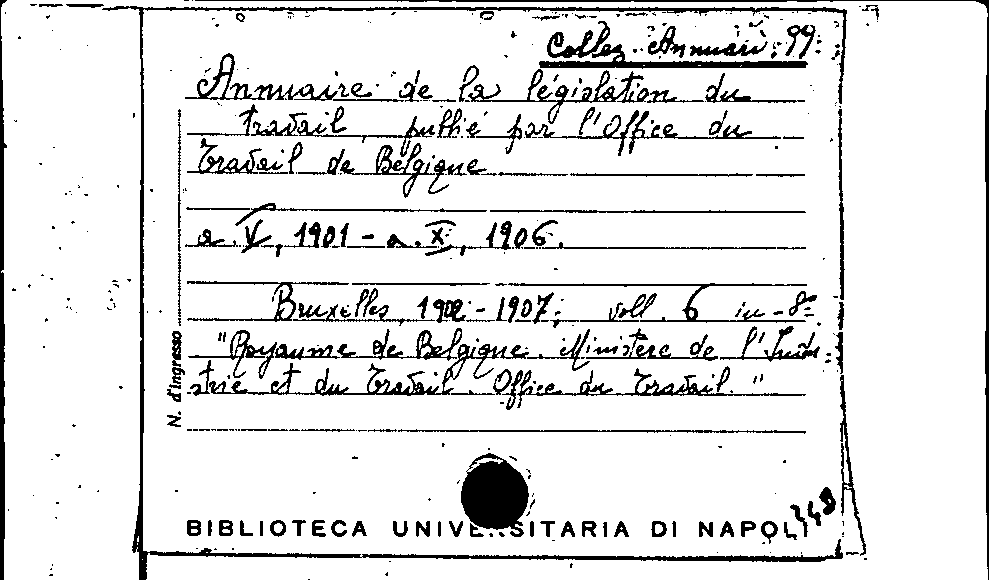 Collez. Annuari. 99
Annuaire de la législation du
travail, publié par l'Office du
Travail de Belgique.
a. V, 1901 - a. X, 1906.
Bruxelles, 1902 - 1907; voll. 6 in-8°
"Royaume de Belgique. Ministère de l'Indu-
strie et du Travail. Office du Travail."
N. d'ingresso
348
BIBLIOTECA UNIVERSITARIA DI NAPOLI